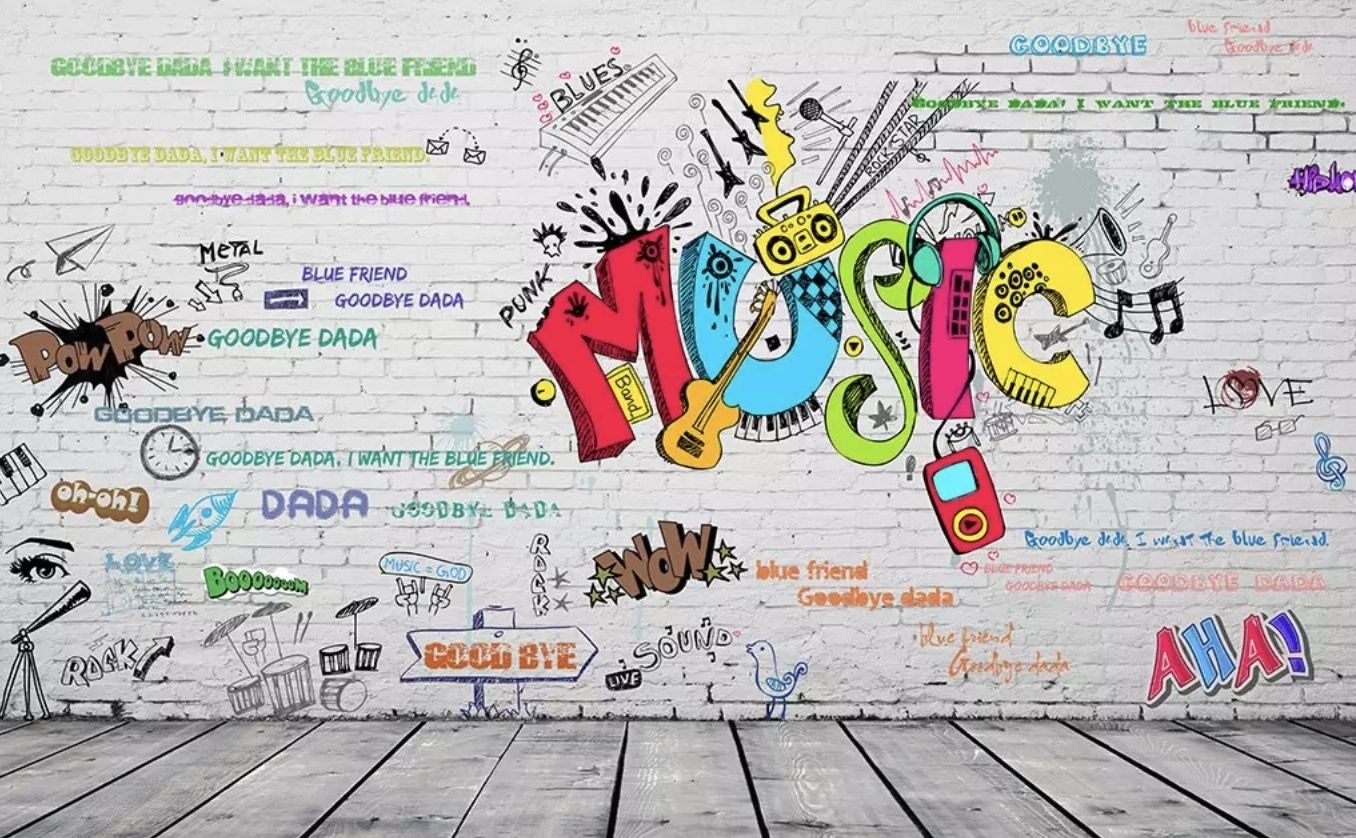 GOODBYE DADA I WANT THE BLUE FRIEND
Goodbye dada
BLUES
GOODBYE
blue friend
Goodbye dada
GOODBYE DADA! I WANT THE BLUE FRIEND.
ROCK STAR
GOODBYE DADA, I WANT THE BLUE FRIEND.
goodbye dada, i want the blue friend,
METAL
BLUE FRIEND
GOODBYE DADA
PUNK
MUSIC
Band
POW POW
GOODBYE DADA
GOODBYE DADA
LOVE
GOODBYE DADA, I WANT THE BLUE FRIEND.
oh-oh!
DADA
GOODBYE DADA
Goodbye dada, I want the blue friend.
LOVE
BOOOOOOOM
MUSIC = GOD
ROCK
WOW
blue friend
Goodbye dada
BLUE FRIEND
GOODBYE DADA
GOODBYE DADA
ROCK
GOOD BYE
SOUND
LIVE
blue friend
Goodbye dada
AHA!